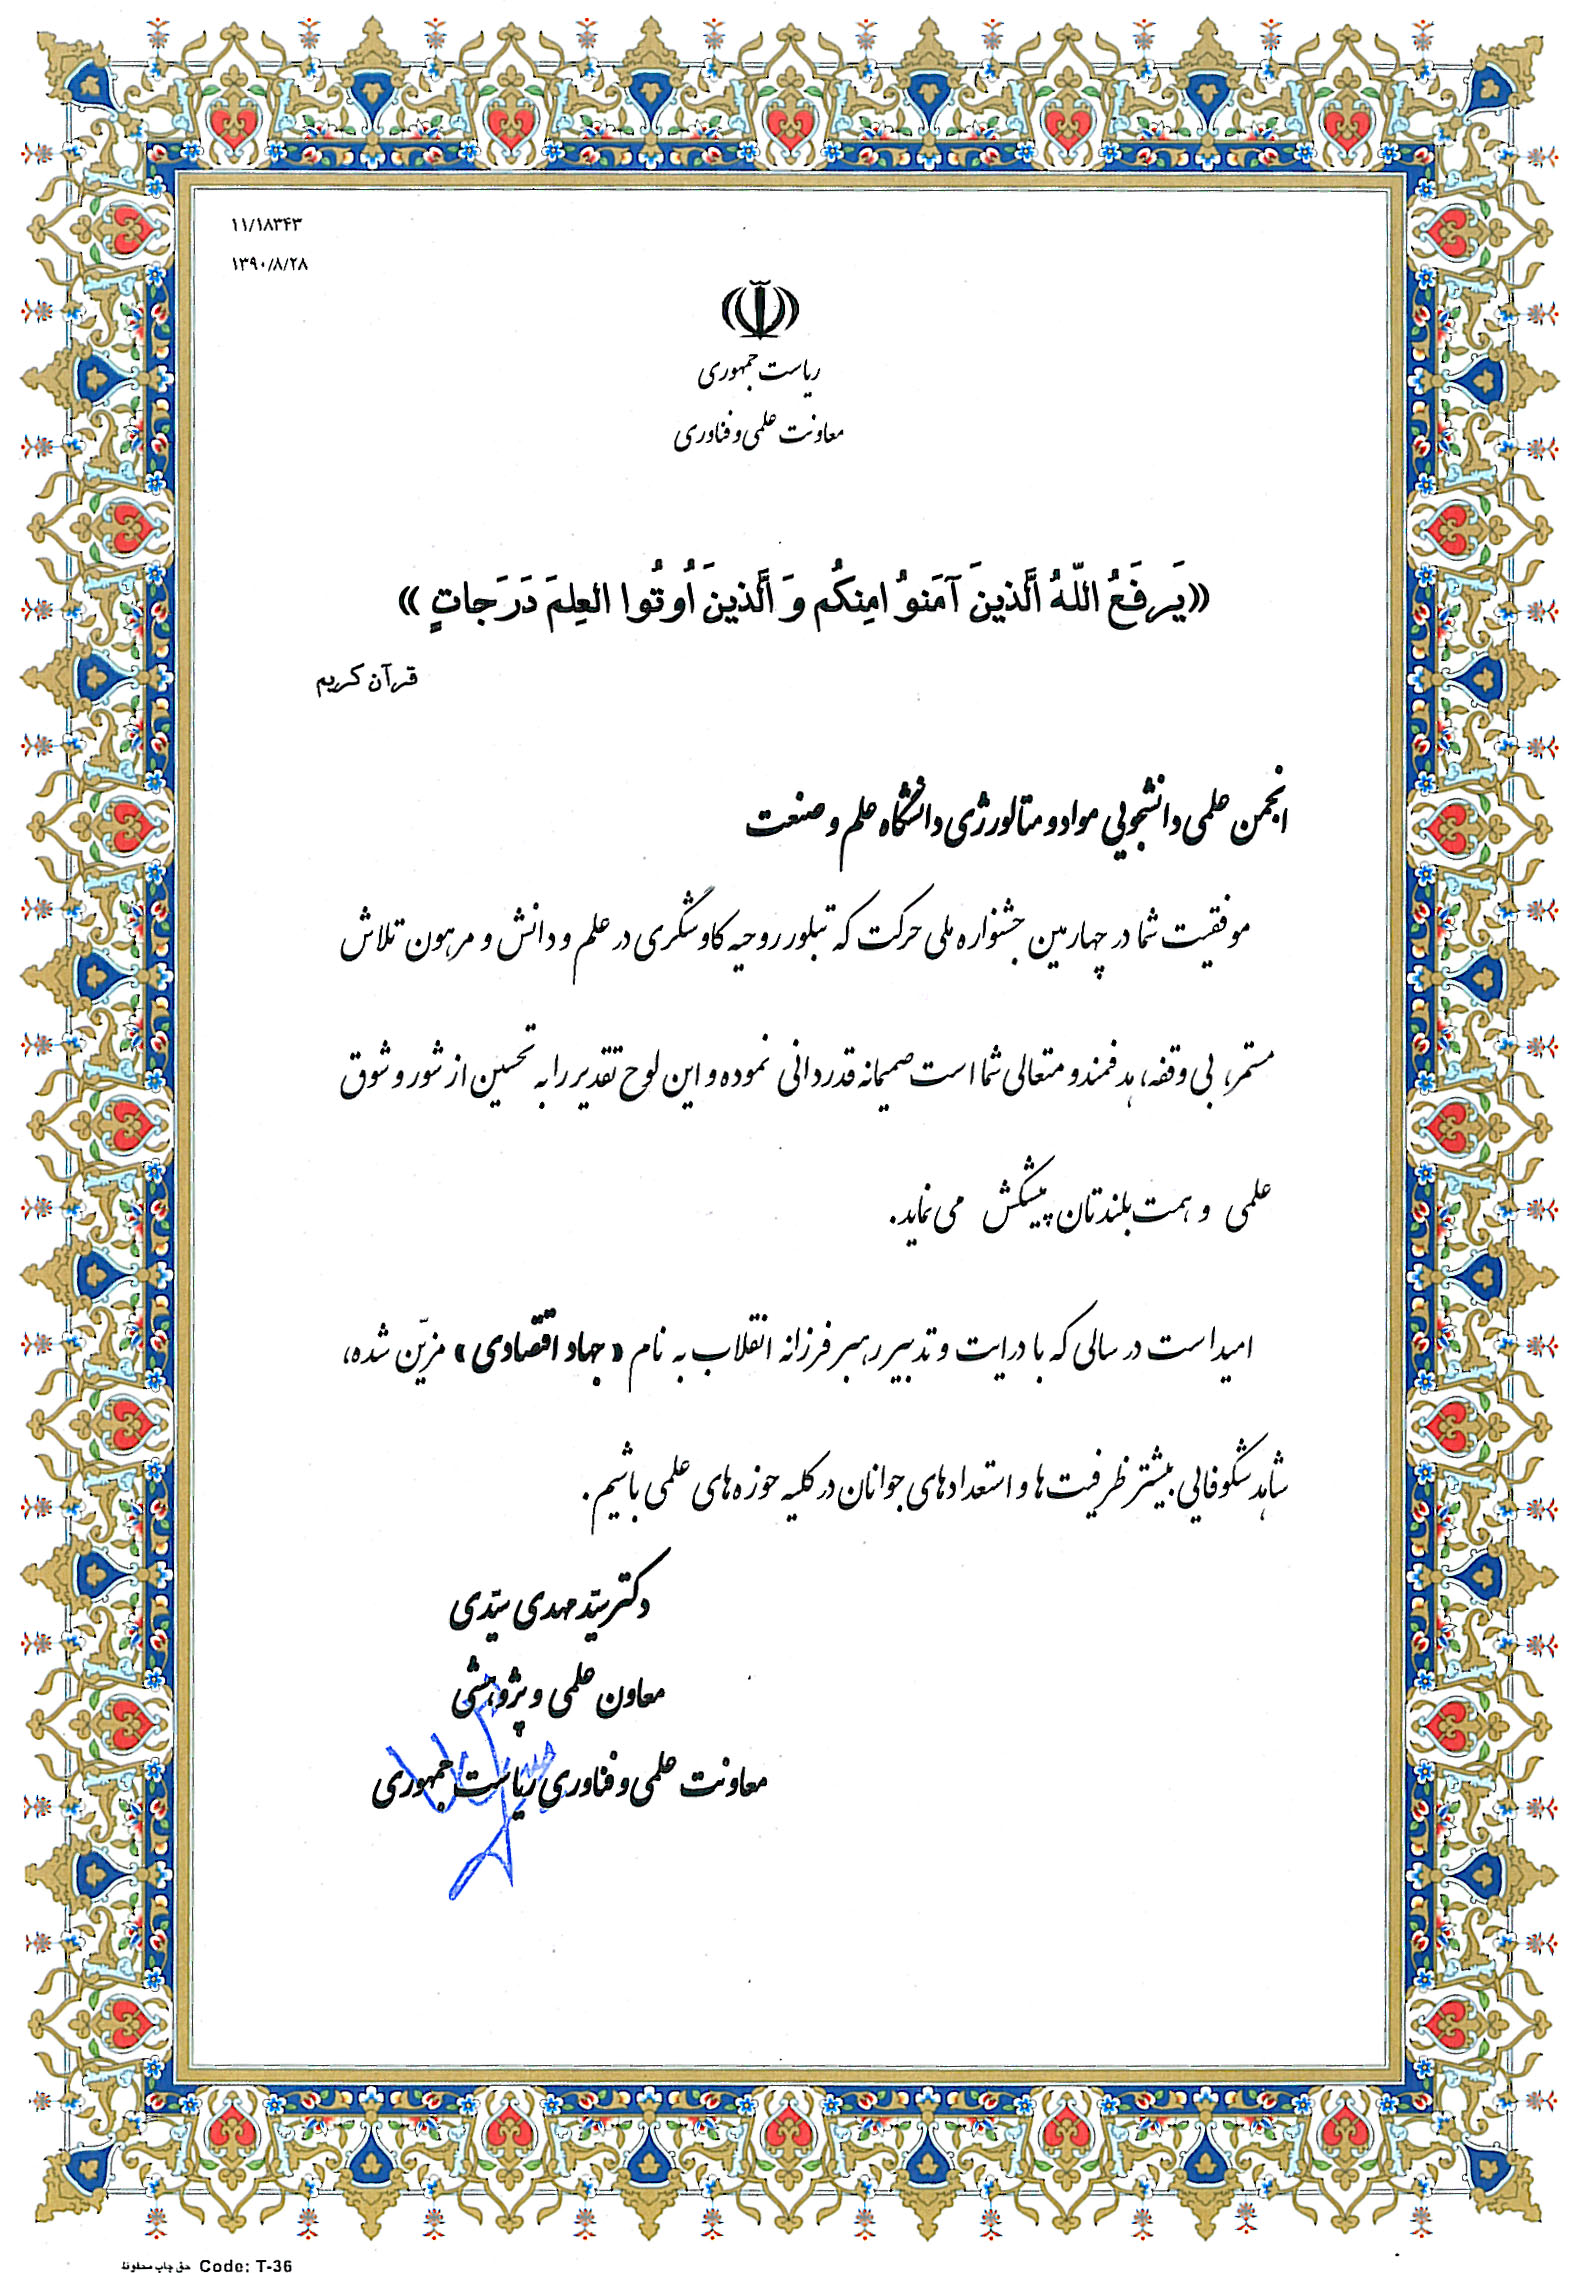 ۱۱/۱۸۳۴۳
۱۳۹۰/۸/۲۸
ریاست جمهوری
معاونت علمی و فناوری
«یَرفَعُ اللّهُ الَّذینَ آمَنوُ امِنکُم وَ الَّذینَ اُوتُوا العِلمَ دَرَجاتٍ»
قرآن کریم
انجمن علمی دانشجویی مواد و متالورژی دانشگاه علم و صنعت
موفقیت شما در چهارمین جشنواره ملی حرکت که تبلور روحیه کاوشگری در علم و دانش و مرهون تلاش
مستمر، بی وقفه، هدفمند و متعالی شما است صمیمانه قدردانی نموده و این لوح تقدیر را به تحسین از شور و شوق
علمی و همت بلندتان پیشکش می نماید.
امید است در سالی که با درایت و تدبیر رهبر فرزانه انقلاب به نام «جهاد اقتصادی» مزیّن شده،
شاهد شکوفایی بیشتر ظرفیت ها و استعدادهای جوانان در کلیه حوزه های علمی باشیم.
دکتر سیّد مهدی سیّدی
معاون علمی و پژوهشی
معاونت علمی و فناوری ریاست جمهوری
حق چاپ محفوظ Code: T-36